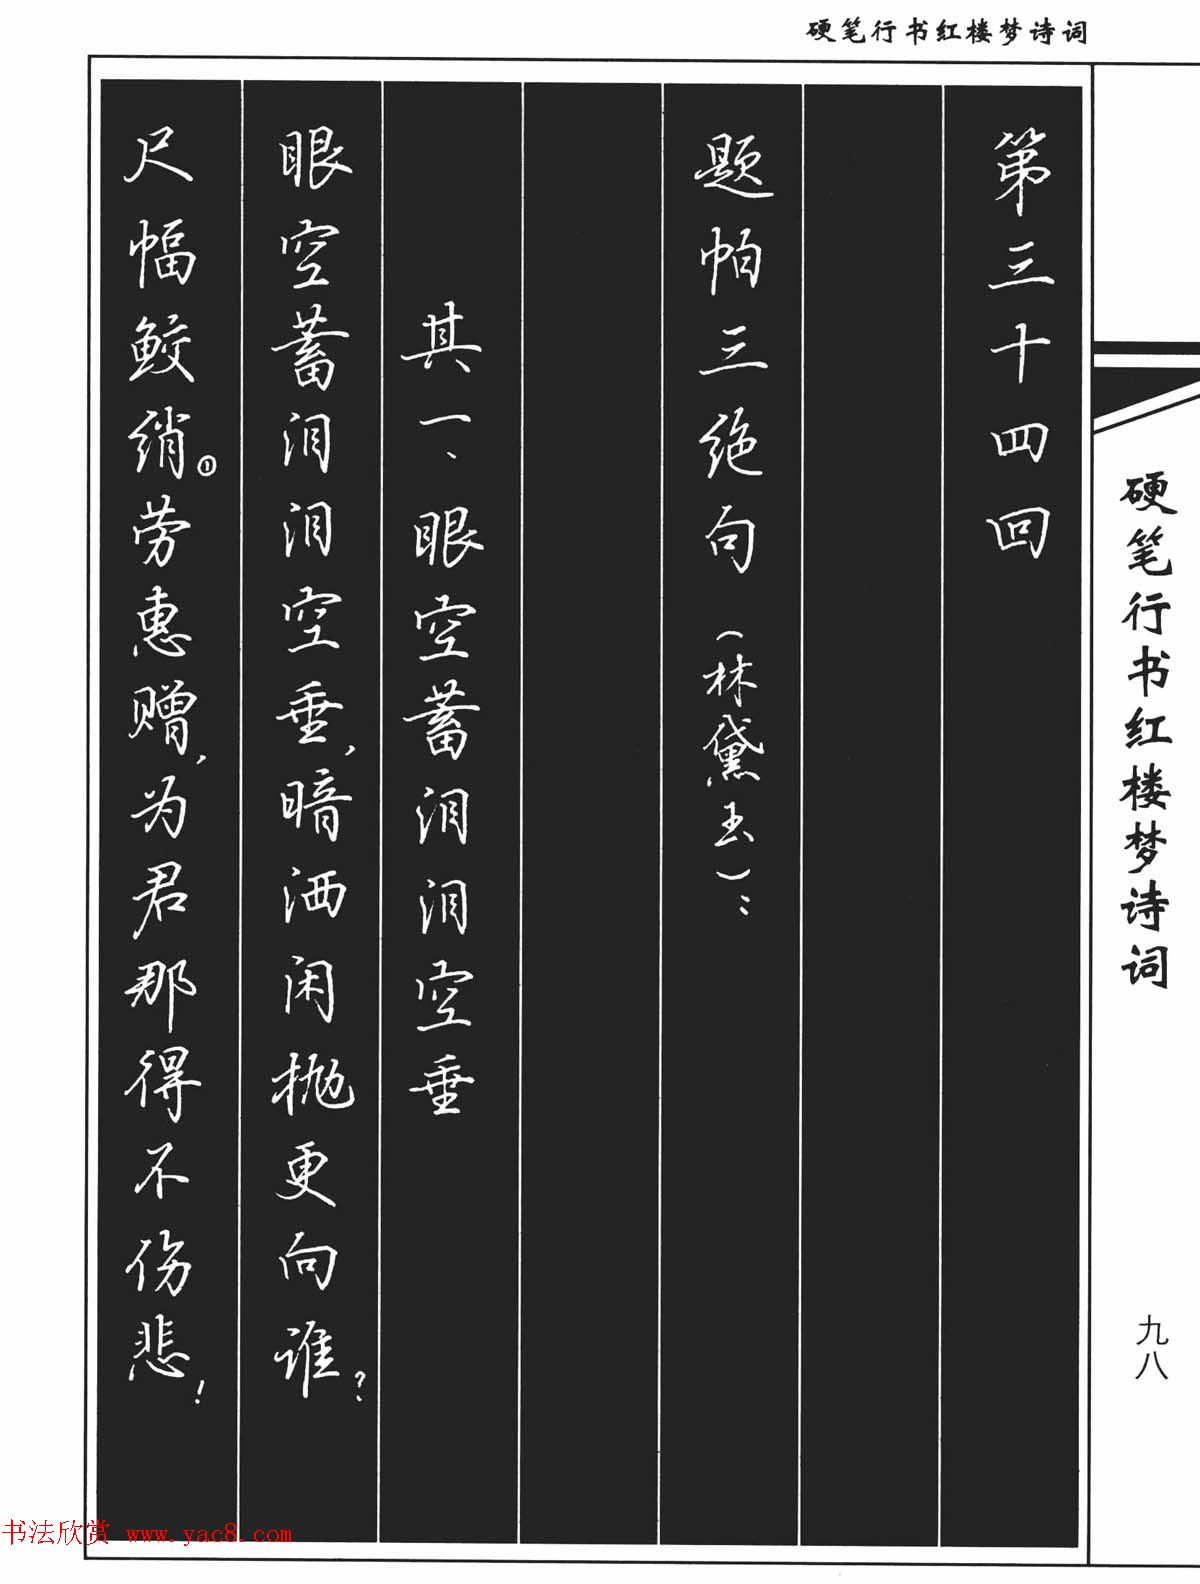 硬笔行书红楼梦诗词
第三十四回
题帕三绝句(林黛玉):
其一、眼空蓄泪泪空垂
眼空蓄泪泪空垂,暗洒闲抛更向谁?
尺幅鲛绡①。劳惠赠,为君那得不伤悲!
硬笔行书红楼梦诗词
九八
书法欣赏 www.yac8.com